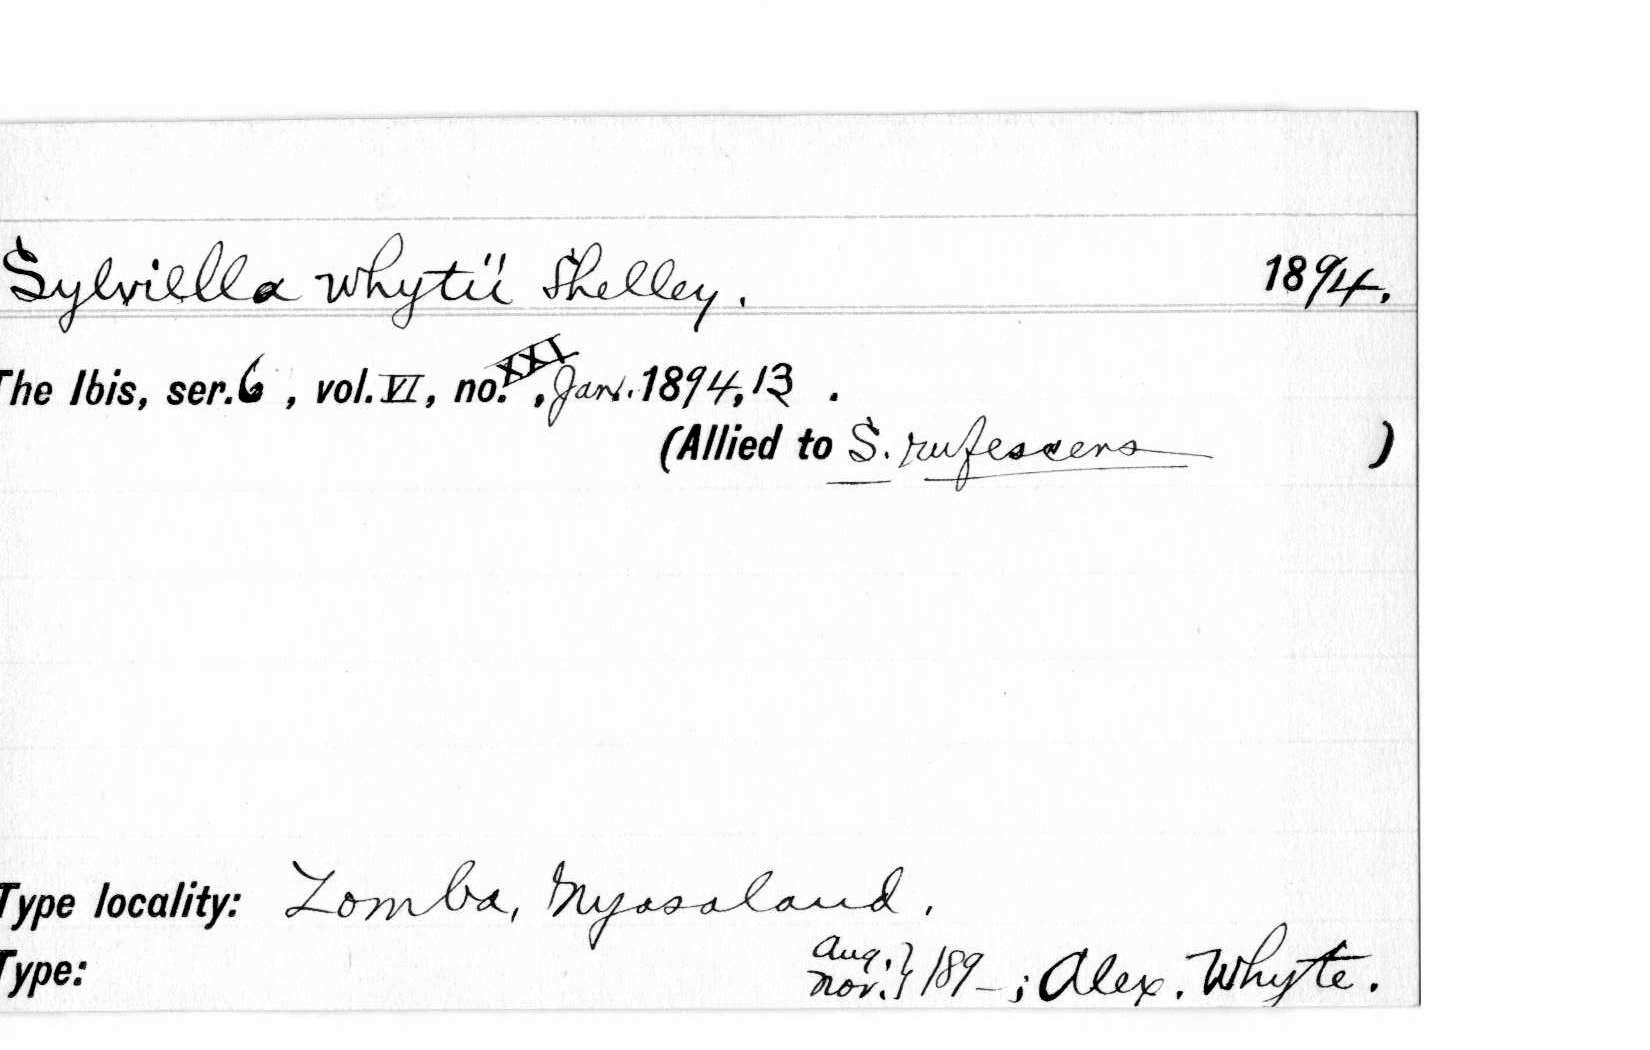 Sylviella whytii Shelley. 1894.
The Ibis, ser. 6, vol. VI, no. XXI, Jan. 1894, 13.
(Allied to S. rufescens )
Type locality: Zomba, Nyasaland.
Type: Aug. } Nov. } 189_; Alex. Whyte.